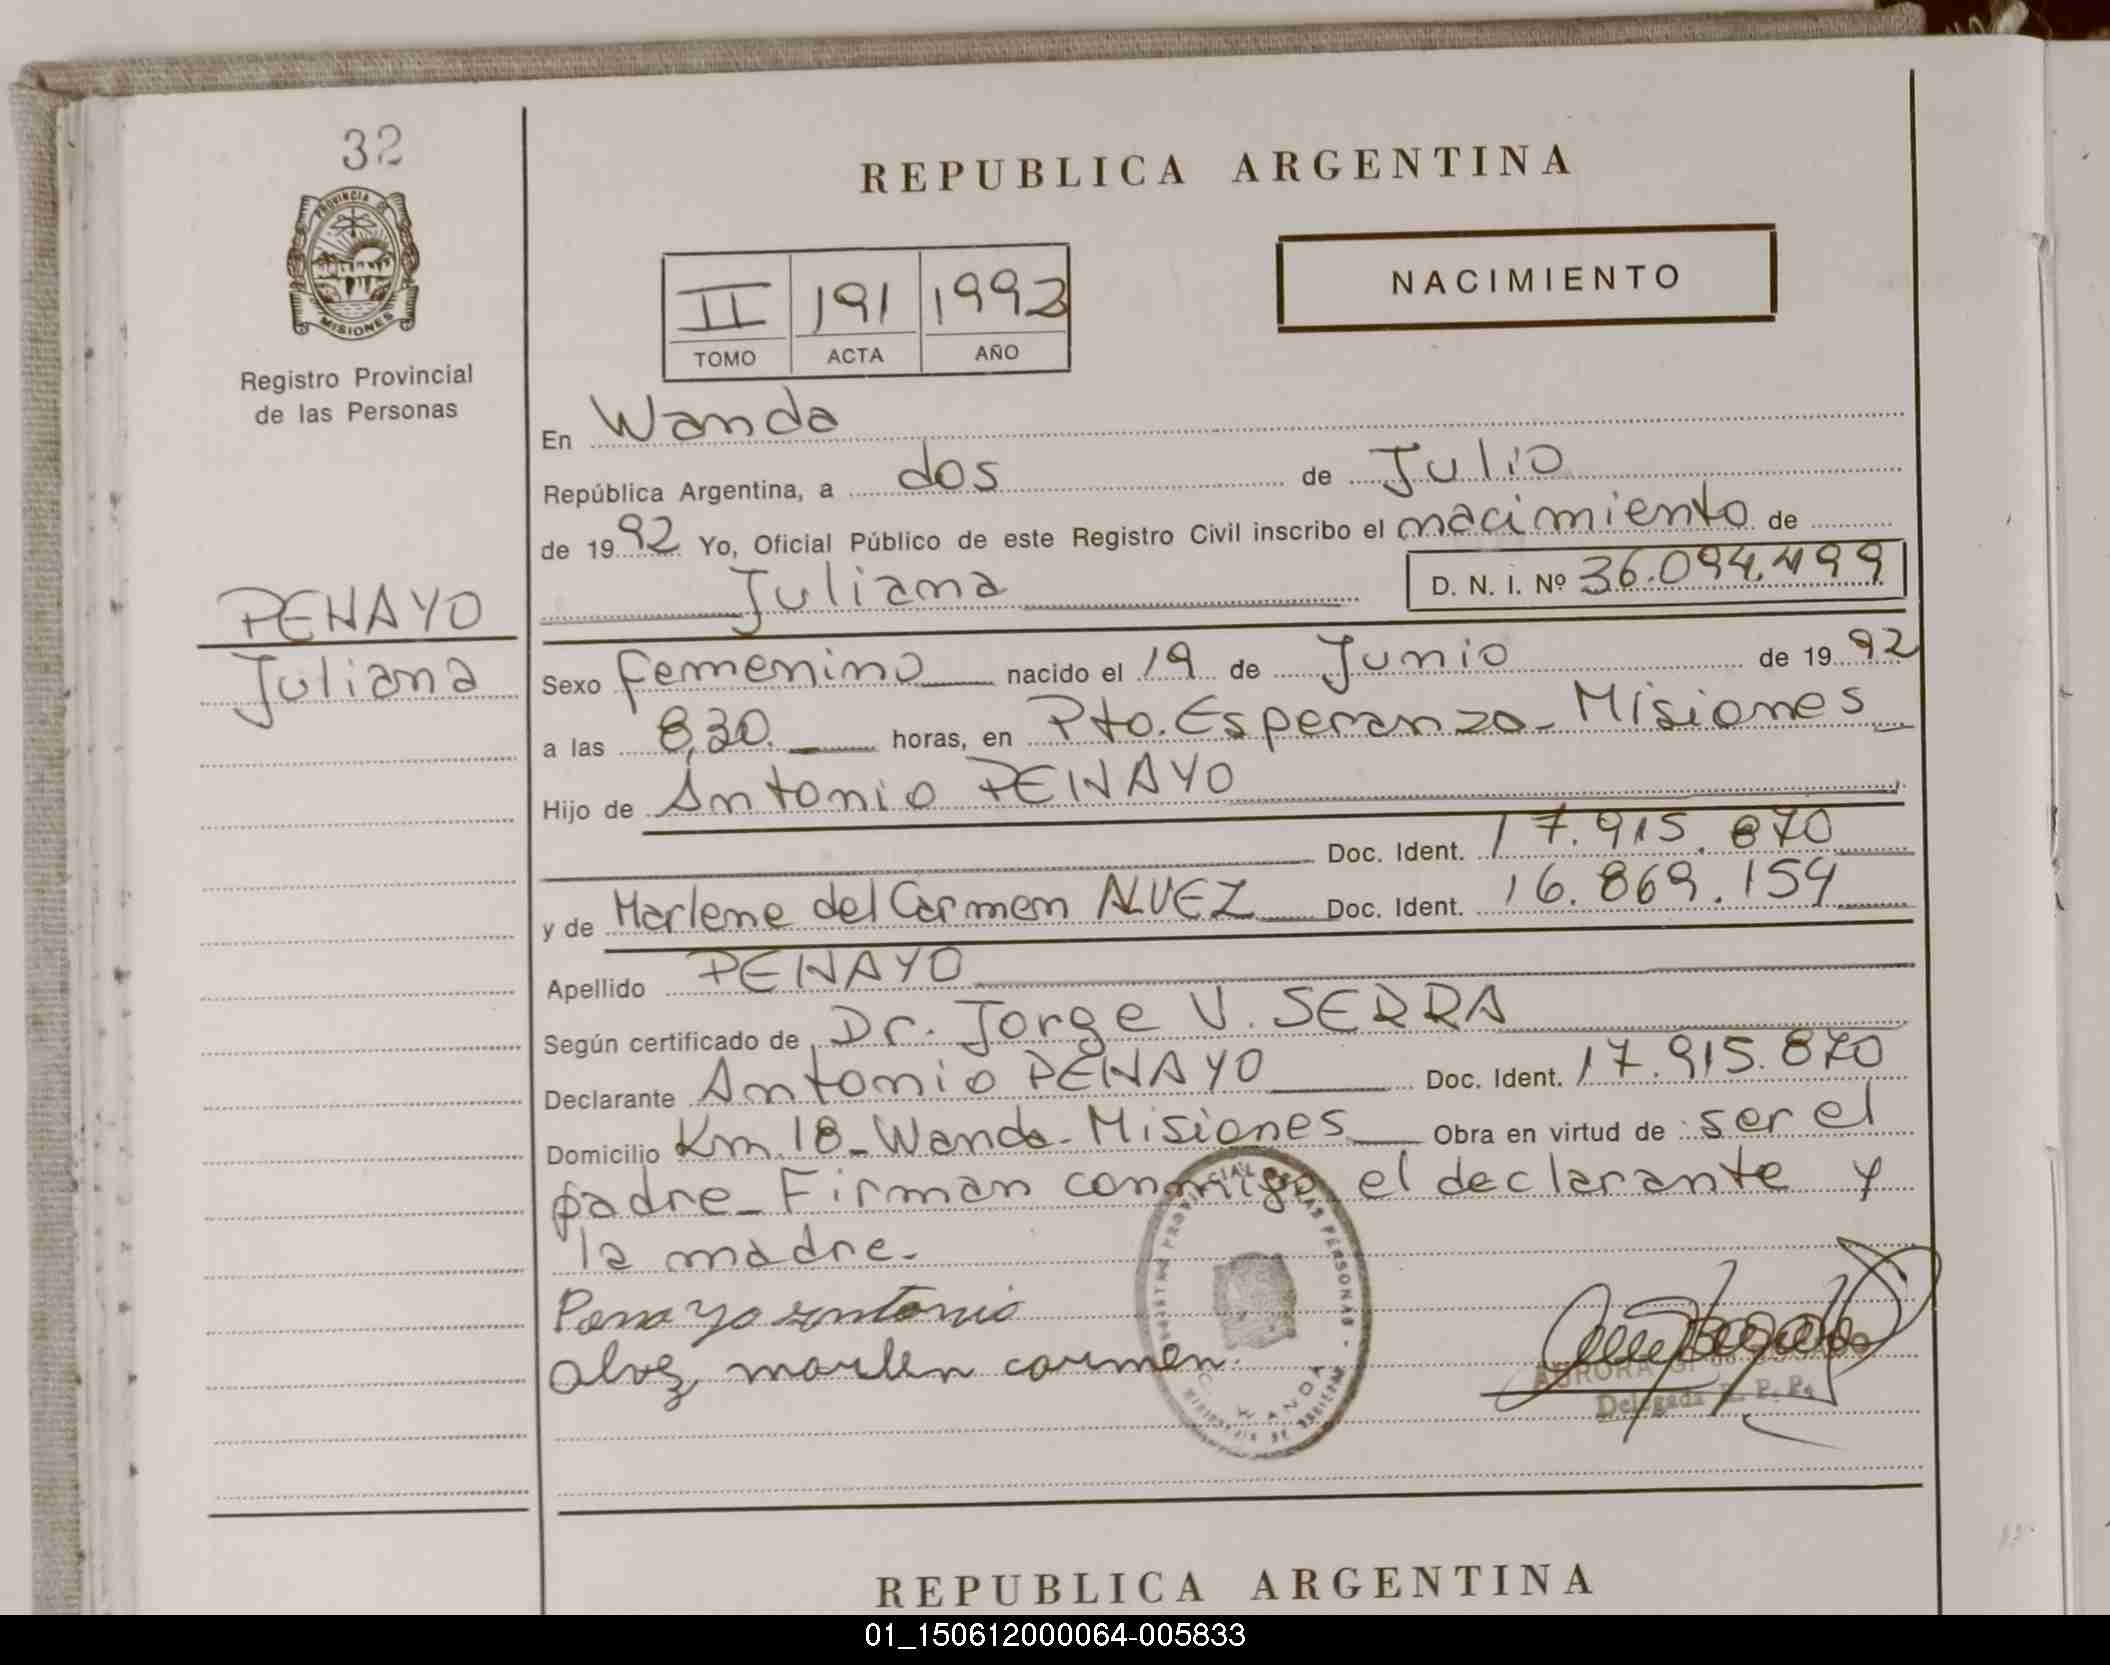 32
PROVINCIA DE
MISIONES
Registro Provincial
de las Personas
PENAYO
Juliana
REPUBLICA ARGENTINA
II 191 1992
TOMO ACTA AÑO
NACIMIENTO
En Wanda
República Argentina, a dos de Julio
de 1992 Yo, Oficial Público de este Registro Civil inscribo el nacimiento de
Juliana D. N. I. Nº 36.094.499
Sexo femenino nacido el 19 de Junio de 1992
a las 8,30. horas, en Pto. Esperanza - Misiones
Hijo de Antonio PENAYO
Doc. Ident. 17.915.870
y de Marlene del Carmen ALVEZ Doc. Ident. 16.869.159
Apellido PENAYO
Según certificado de Dr. Jorge V. SERRA
Declarante Antonio PENAYO Doc. Ident. 17.915.870
Domicilio Km 18 - Wanda - Misiones Obra en virtud de ser el
padre - Firman conmigo el declarante y
la madre.
Penayo antonio
alvez marlen carmen.
REGISTRO PROVINCIAL DE LAS PERSONAS -
WANDA
AURORA
Delegada R. P. P.
REPUBLICA ARGENTINA
01_150612000064-005833